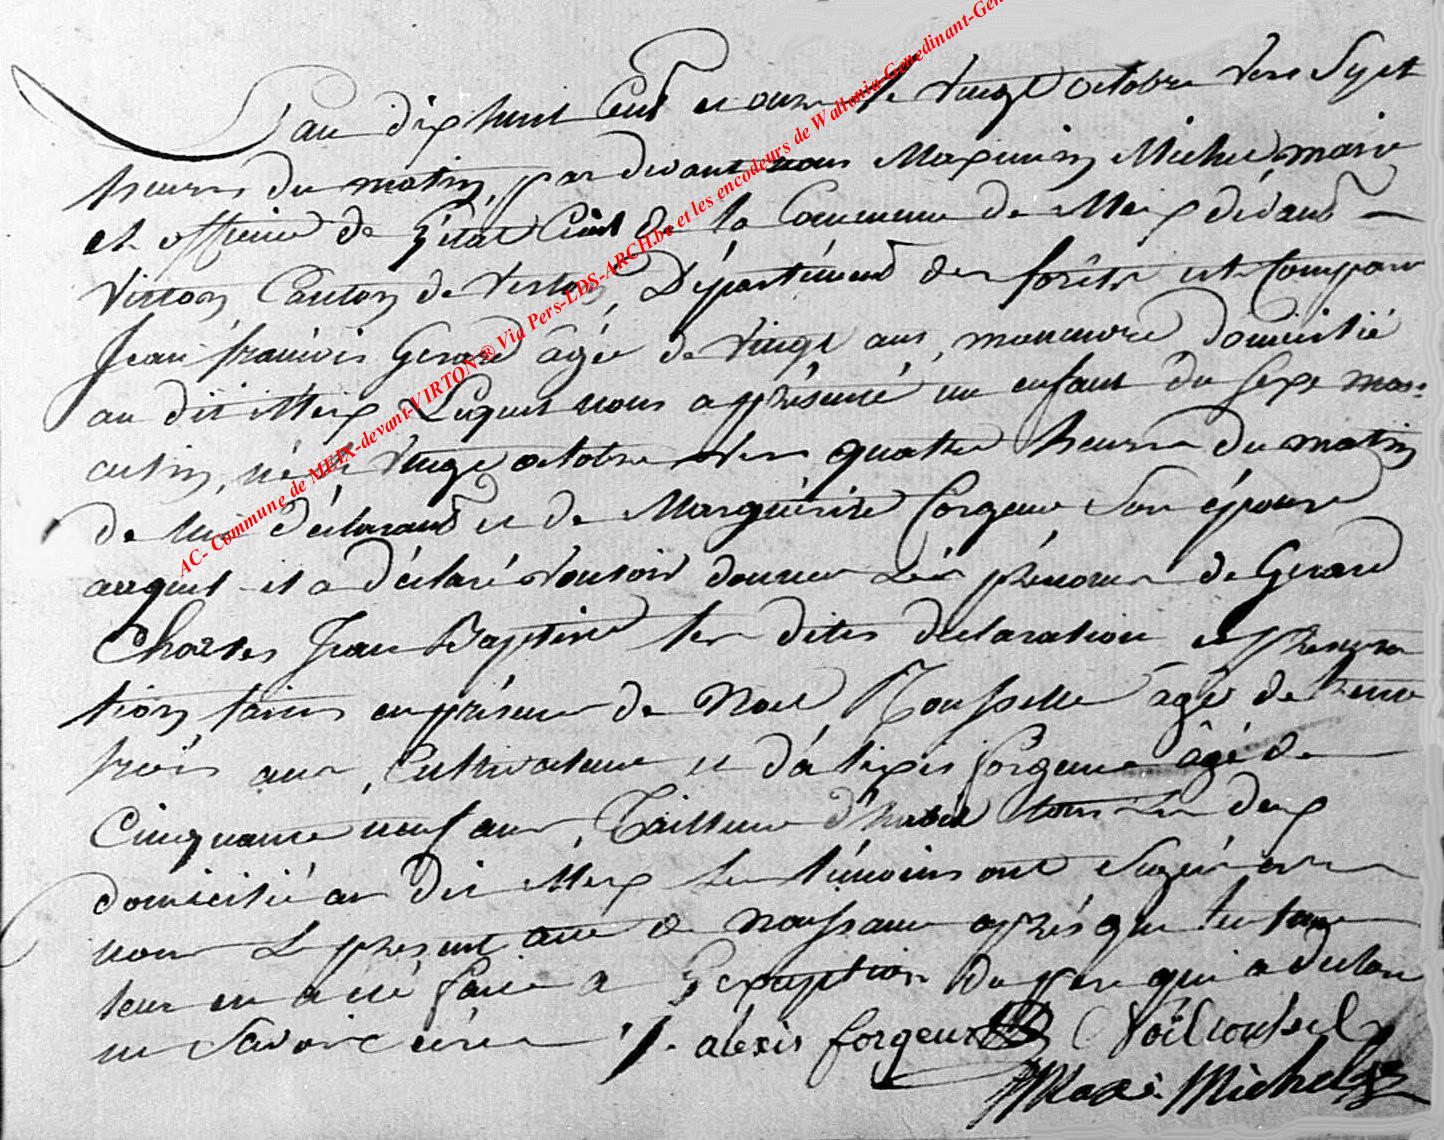 L'an dix huit Cent et onze le vingt octobre vers Sept
heures du matin, par devant nous Maximin Michel, maire
et officier de L'état Civil de la Commune de Meix dévant
Virton Canton de Virton, Département des forêts est Comparu
Jean françois Gerard agée de vingt ans, manœuvre domicilié
au dit Meix Lequel nous a présenté un enfant du sexe mas=
culin, né le vingt octobre vers quatre heures du matin
de lui déclarant et de Marguérite forgeur Son épouse
auquel il a déclaré vouloir donner Les prénoms de Gerard
Charles Jean Baptiste les dites déclaration et présenta
tion faites en présence de Noel age de trente
trois ans, Cultivateur et d'aléxis forgeur âgé de
Cinquante neuf ans, Tailleur d'habit tous les deux
domicilié au dit Meix Les témoins ont Signé avec
nous Le présent acte de naissance après que lecture
leur en a été faite a L'exception du pere qui a déclaré
ne Savoir écrire /. alexis forgeur Noël
Maxi Michel
AC- Commune de MEIX-devant-VIRTON ® Via Pers-LDS-ARCH.be et les encodeurs de Wallonia-Genedinant-Gen